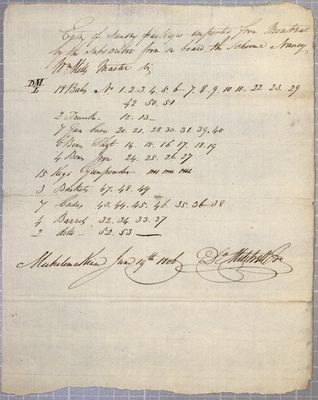 Copy of Sundry packages imported from Montreal
by the Subscriber from on board the Schooner Nancy
Wm Mills Master Viz
DM 18 Bales No 1. 2. 3. 4. 5. 6. 7. 8. 9. 10. 11. 22. 23. 29
42. 50. 51
2 Trunks 12. 13
7 Gun Cases 20. 21. 28. 30. 31. 39. 40
6 Bars Shot 14. 15. 16. 17. 18. 19
4 24. 25. 26. 27
15 Kegs Gunpowder
3 Baskets 47. 48. 49
7 Cases 43. 44. 45. 46. 35. 36. 38
4 Barrels 32. 34. 33. 37
2 ditto 52. 53
19th 1806 Dd Mitchell